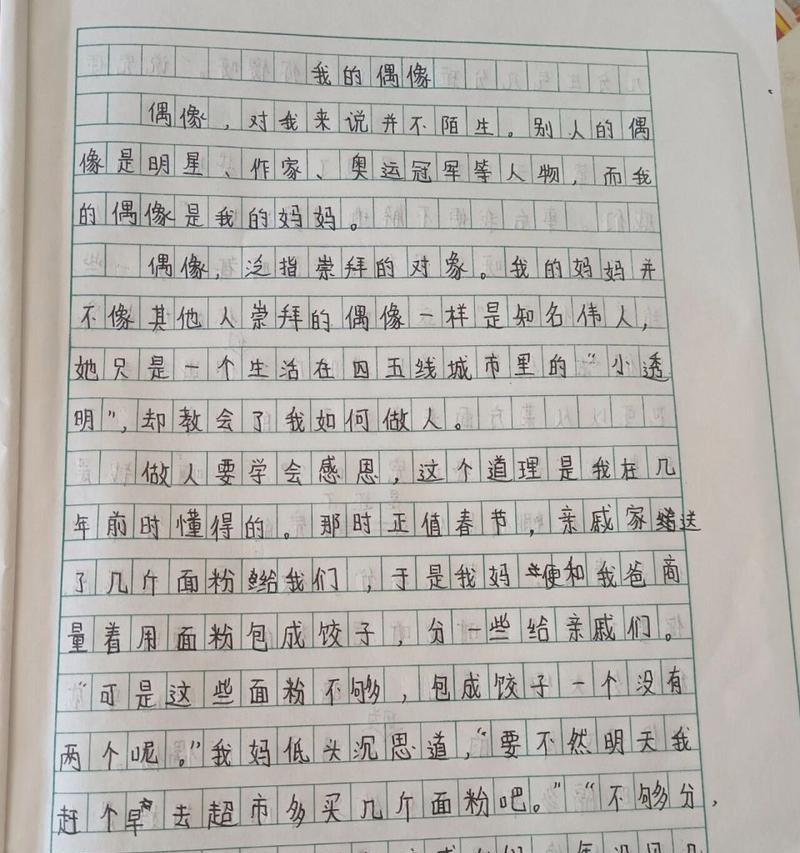 我的偶像
偶像，对我来说并不陌生。别人的偶
像是明星、作家、奥运冠军等人物，而我
的偶像是我的妈妈。
偶像，泛指崇拜的对象。我的妈妈并
不像其他人崇拜的偶像一样是知名伟人，
她只是一个生活在四五线城市里的“小透
明”，却教会了我如何做人。
做人要学会感恩，这个道理是我在几
年前时懂得的。那时正值春节，亲戚家送
了几斤面粉给我们，于是我妈便和我爸商
量着用面粉包成饺子，分一些给亲戚们。
“可是这些面粉不够，包成饺子一个没有
两个呢。”我妈低头沉思道，“要不然明天我
赶个早去超市多买几斤面粉吧。”“不够分，